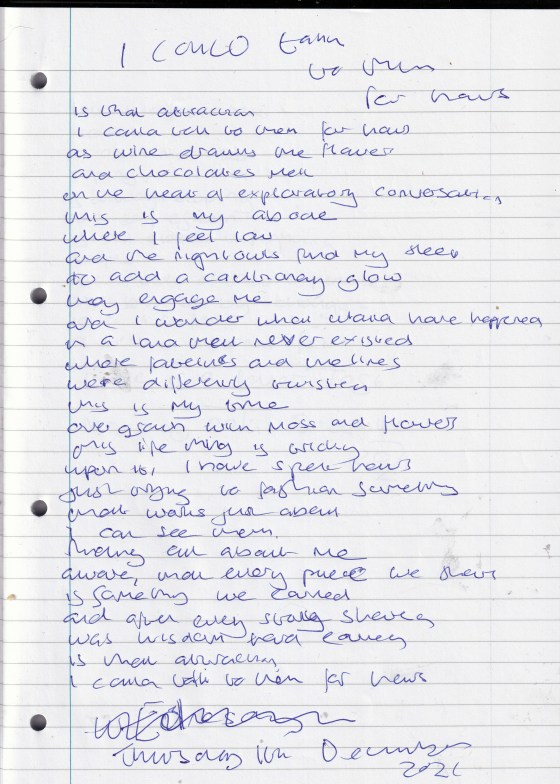 I COULD talk
to them
for hours
is that attraction
I could talk to them for hours
as wine drowns the flower
and chocolates melt
in the heat of exploratory conversation
this is my abode
where I feel low
and the nightowls find my sleep
to add a cautionary glow
they engage me
and I wonder what would have happened
in a land that never existed
where fabrics and
were differently
this is my time
overgrown with moss and flowers
this life thing is tricky
upon it, I have spent hours
just trying to fashion something
that works just about
I can see them
finding out about me
aware, that every piece we share
is something we earned
and after every story shared
was wisdom hard earned
is that attraction
I could talk to them for hours
Thursday 16th December
2021